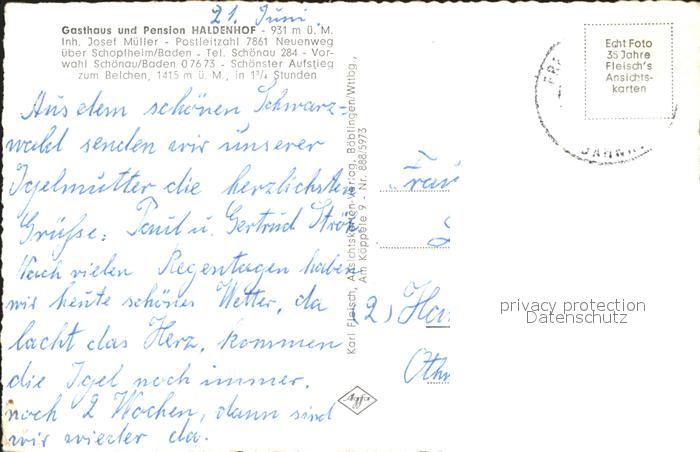 21. Juni
Gasthaus und Pension HALDENHOF - 931 m ü. M.
Inh. Josef Müller - Postleitzahl 7861 Neuenweg
über Schopfheim/Baden - Tel. Schönau 284 - Vor-
wahl Schönau/Baden 07673 - Schönster Aufstieg
zum Belchen, 1415 m ü. M., in 1¾ Stunden
Aus dem schönen Schwarz=
wald senden wir unserer
Igelmutter die herzlichsten
Grüße: Paul u. Gertrud
Nach vielen Regentagen haben
wir heute schönes Wetter, da
lacht das Herz, kommen
die Igel noch immer.
noch 2 Wochen, dann sind
wir wieder da.
Karl Fleisch, Ansichtskarten-Verlag, Böblingen/Wttbg.,
Am Käppele 9 - Nr. 888/5973
Agfa
Echt Foto
35 Jahre
Fleisch's
Ansichts-
karten
Frau
2)
privacy protection
Datenschutz